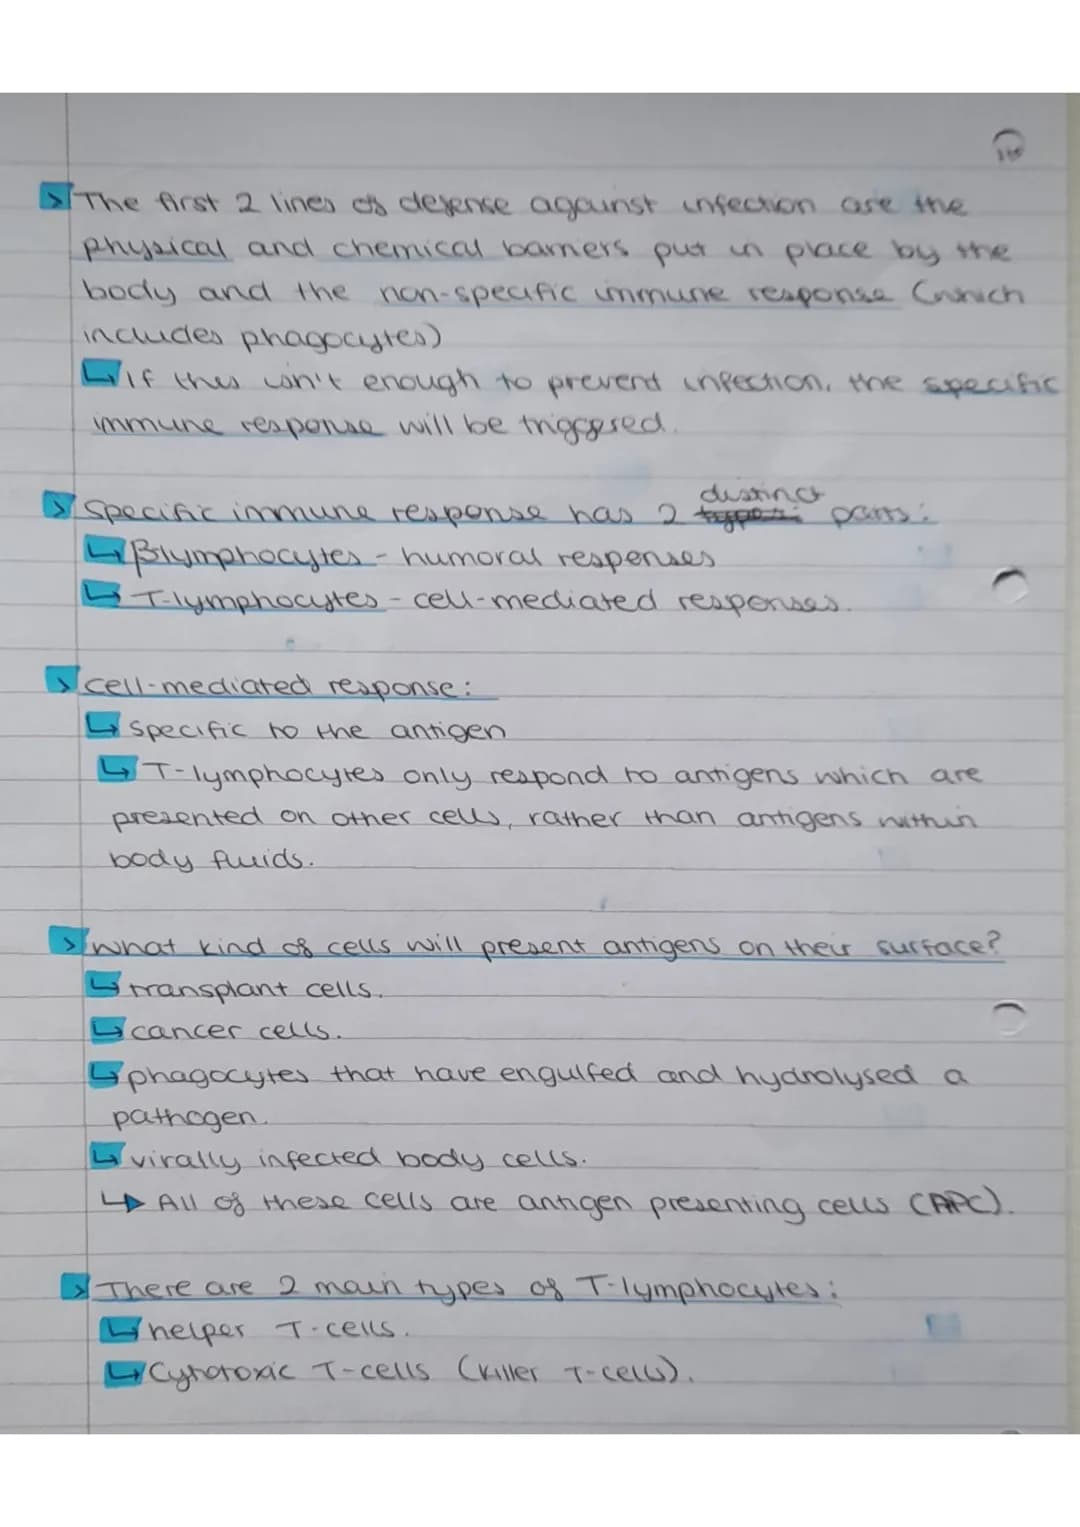 > The first 2 lines of defense against infection are the
physical and chemical barriers put in place by the
body and the non-specific immune response (which
includes phagocytes)
↳ If this isn't enough to prevent infection, the specific
immune response will be triggered.
> Specific immune response has 2 distinct parts:
↳ B lymphocytes - humoral responses
↳ T-lymphocytes - cell-mediated responses.
> cell-mediated response:
↳ specific to the antigen
↳ T-lymphocytes only respond to antigens which are
presented on other cells, rather than antigens within
body fluids.
> what kind of cells will present antigens on their surface?
↳ transplant cells.
↳ cancer cells.
↳ phagocytes that have engulfed and hydrolysed a
pathogen.
↳ virally infected body cells.
↳ All of these cells are antigen presenting cells (APC).
> There are 2 main types of T-lymphocytes:
↳ helper T-cells.
↳ Cytotoxic T-cells (killer T-cells).